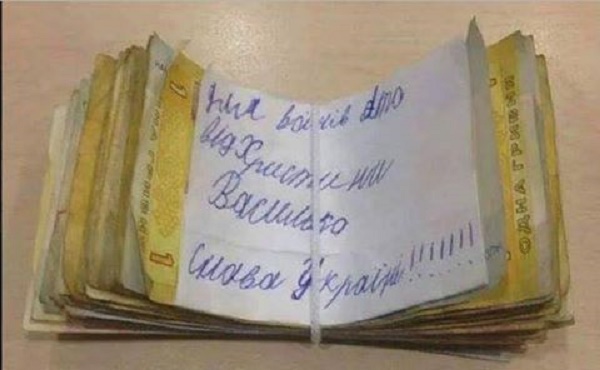 Для воїнів Ато
від Христини
Василько
Слава Україні!!!!!!!!
1
1
ОДНА ГРИВНЯ